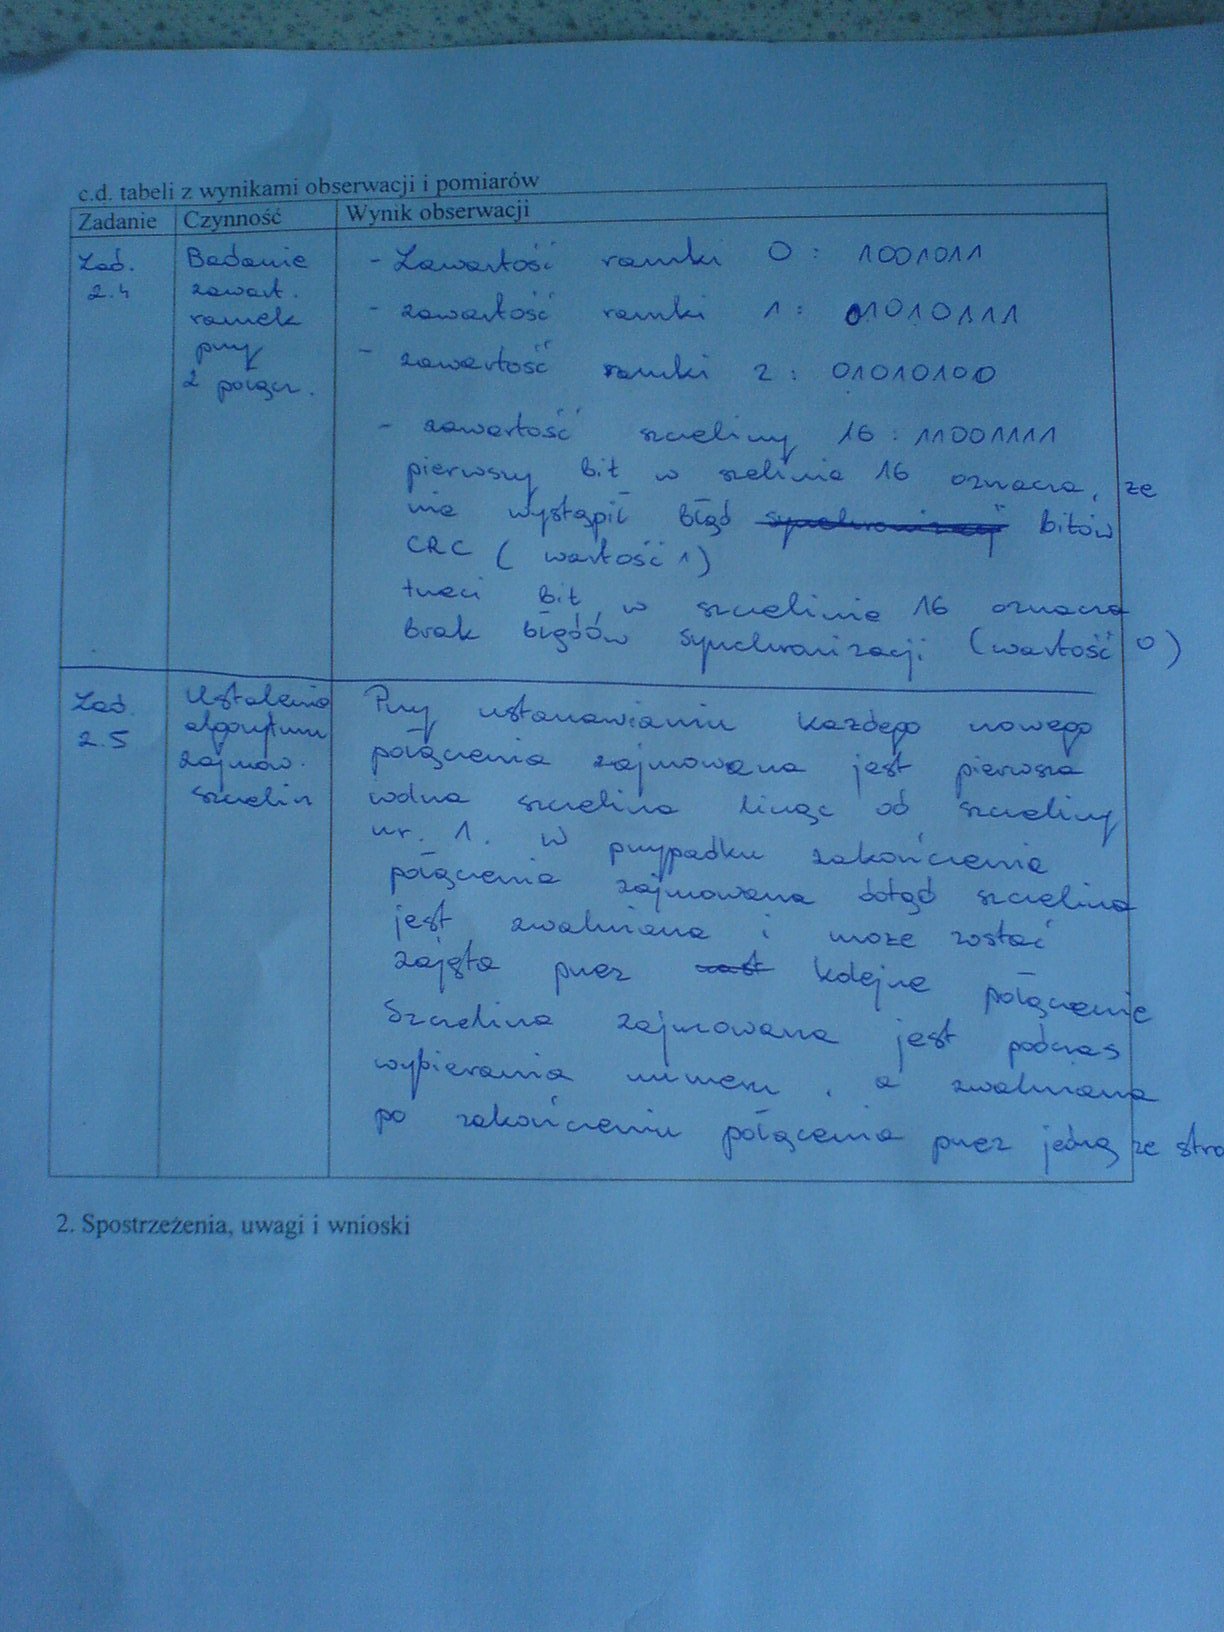 c.d. tabeli z wynikami obserwacji i pomiarów
Zadanie Czynność Wynik obserwacji
Zad.
2.4
Badanie
zawart.
ramek
przy
2 połącz.
- Zawartość ramki 0 : 1001011
- zawartość ramki 1 : 01010111
- zawartość ramki 2 : 01010100
- zawartość szczeliny 16 : 11001111
pierwszy bit w szelinie 16 oznacza, że
nie wystąpił błąd synchronizacji bitów
CRC ( wartość 1)
trzeci bit w szczelinie 16 oznacza
brak błędów synchronizacji (wartość 0)
Zad.
2.5
Ustalenie
algorytmu
zajmow.
szczelin
Przy ustanawianiu każdego nowego
połączenia zajmowana jest pierwsza
wolna szczelina licząc od szczeliny
nr. 1. W przypadku zakończenia
połączenia zajmowana dotąd szczelina
jest zwalniana i może zostać
zajęta przez kolejne połączenie
Szczelina zajmowana jest podczas
wybierania numeru, a zwalniana
po zakończeniu połącenia przez jedną ze stro
2. Spostrzeżenia, uwagi i wnioski